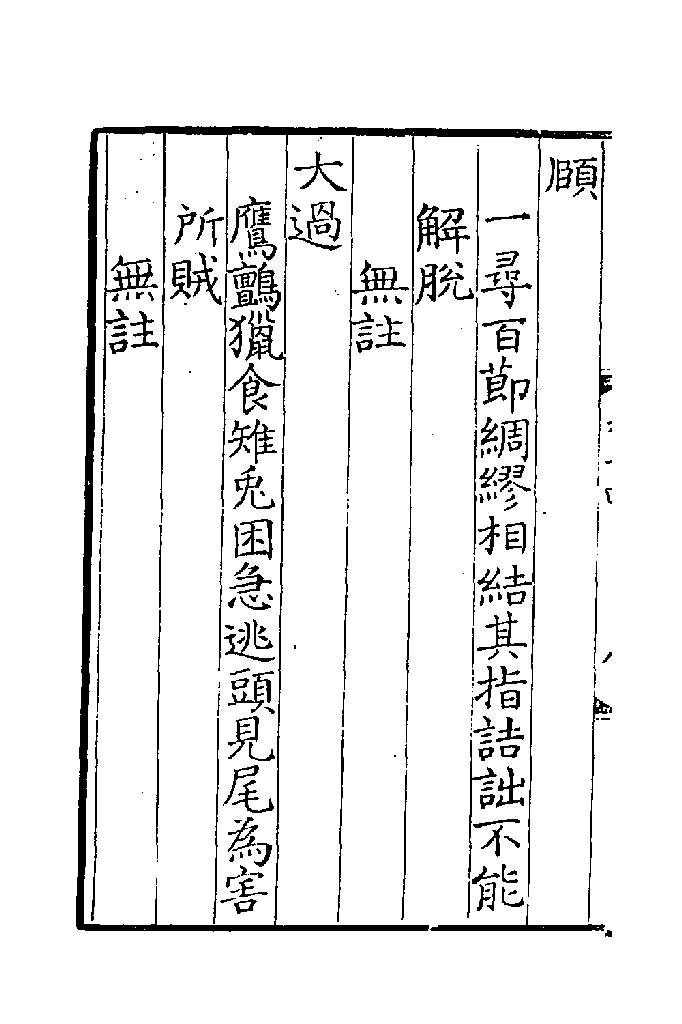 頤
一尋百莭綢繆相結其指詰詘不能
解脫
無註
大過
鷹鸇獵食雉兎困急逃頭見尾為害
所賊
無註